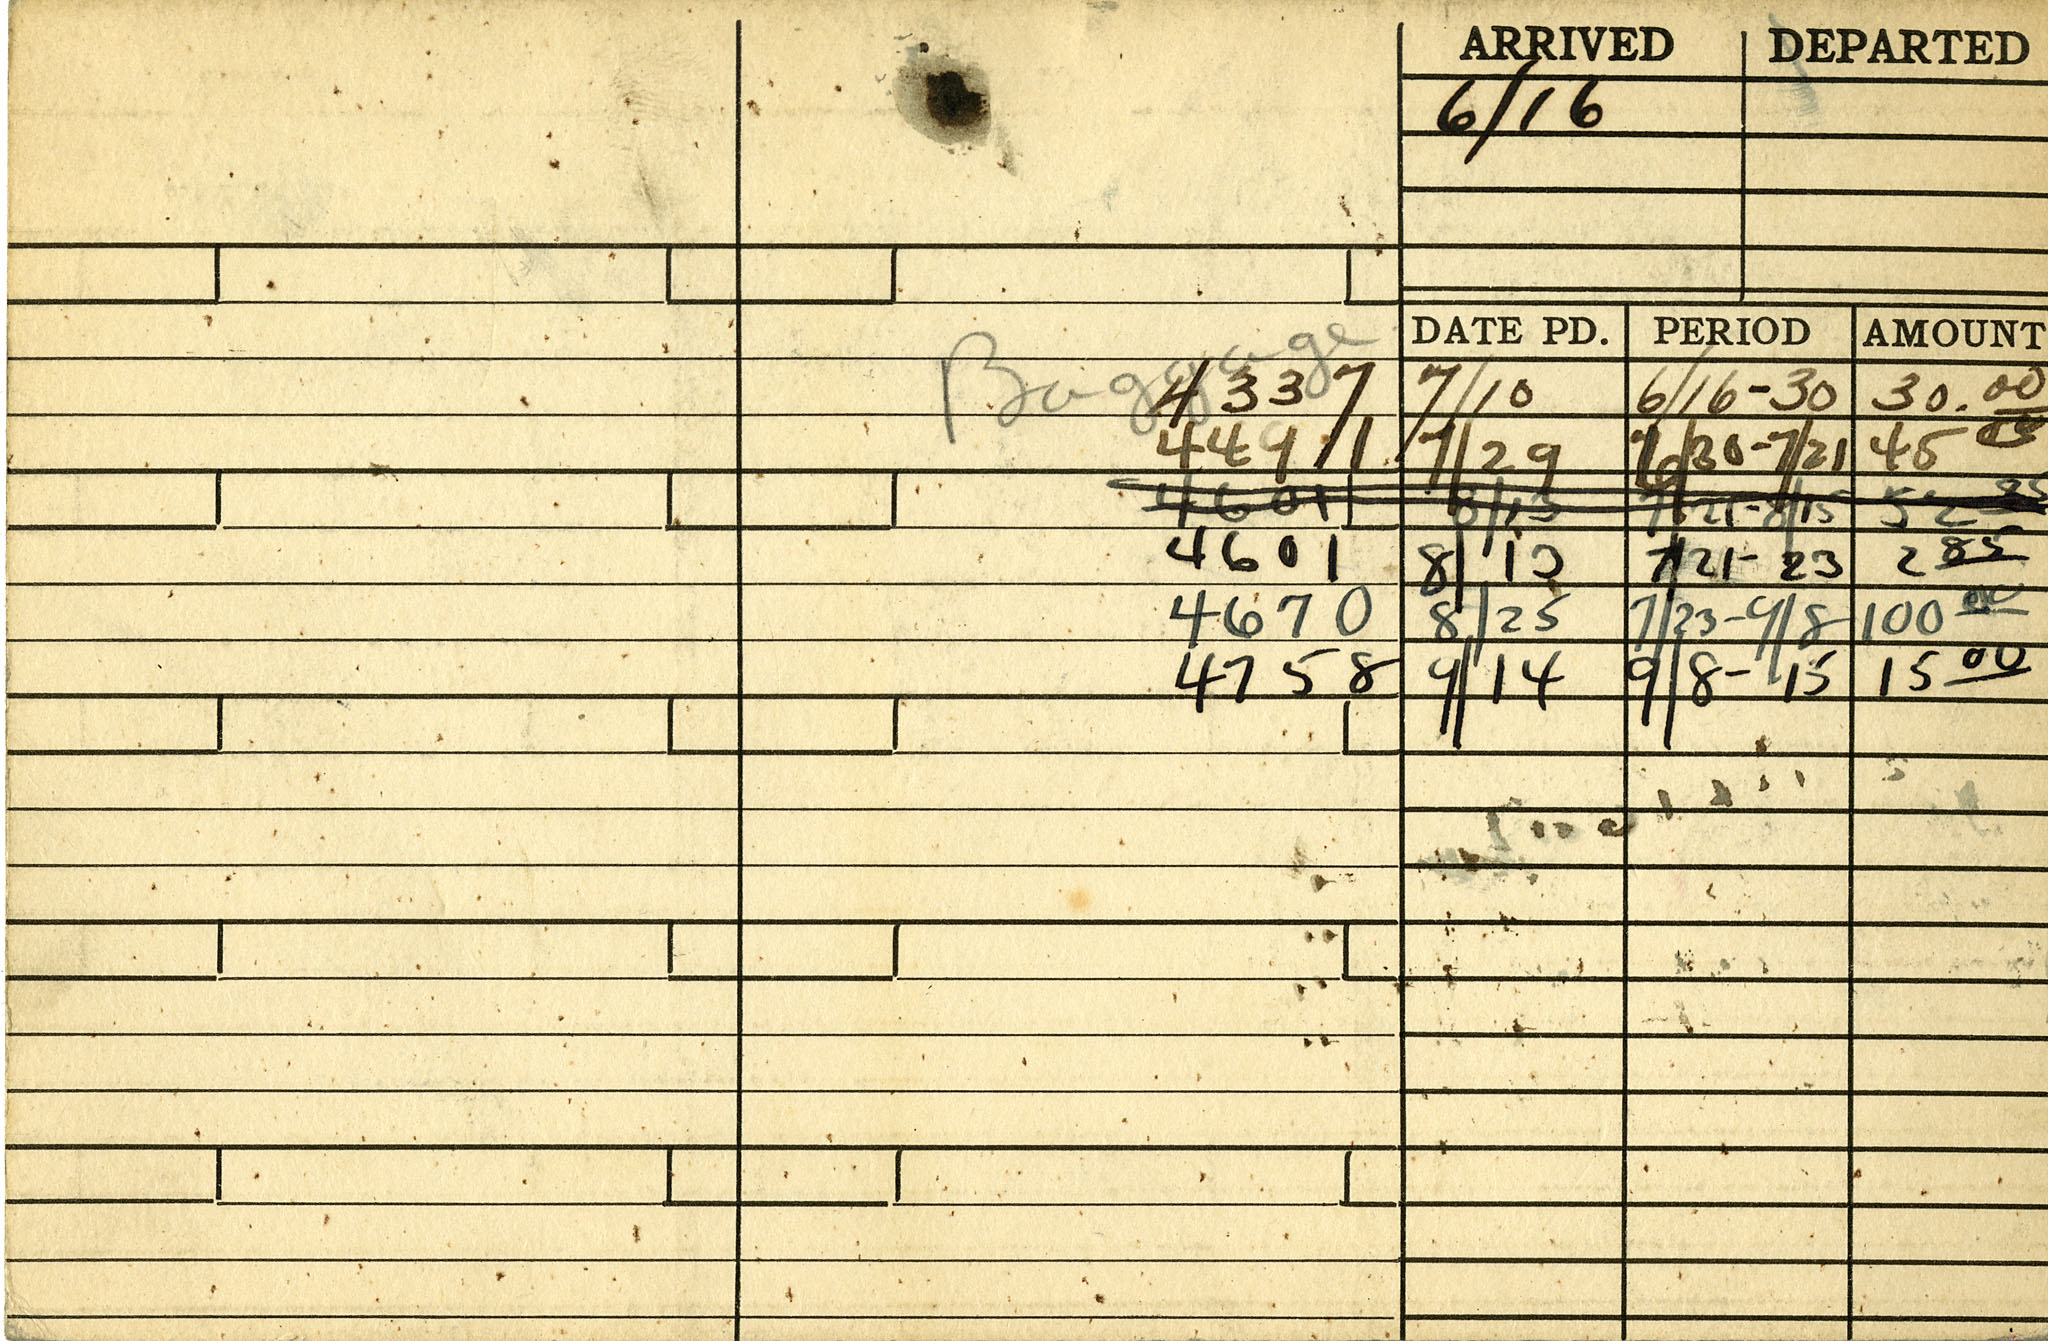 ARRIVED DEPARTED
6/16
DATE PD. PERIOD AMOUNT
Baggage
4337 7/10 6/16-30 30.00
4491 7/29 6/30-7/21 45
4601 8/13 7/21-8/15 52 85
4601 8/13 7/21-23 2 85
4670 8/25 7/23-9/8 100 00
4758 9/14 9/8-15 15 00